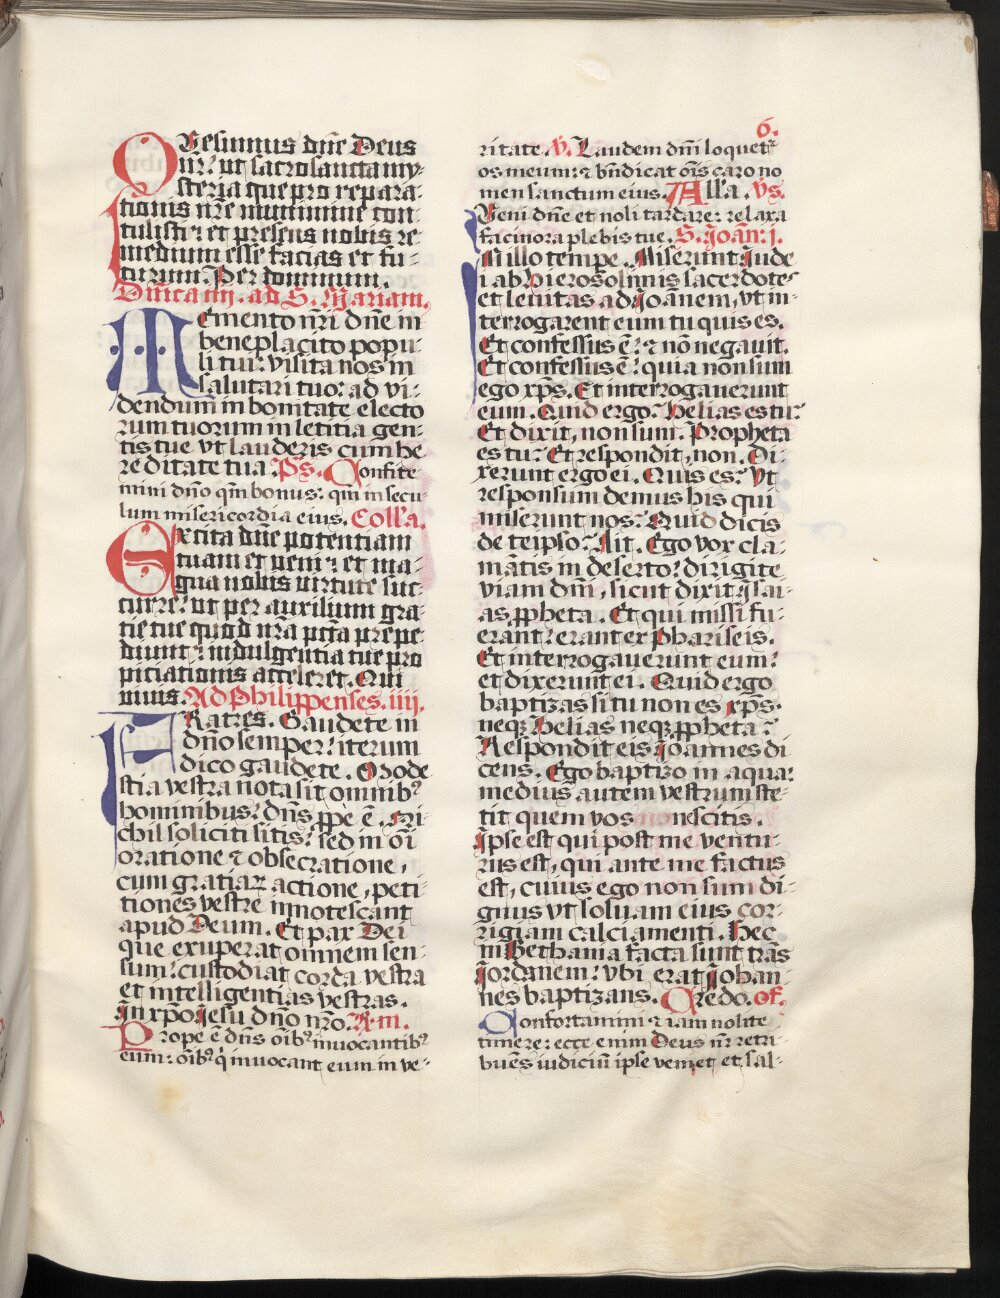 Quesumus dñe Deus
nr̃: ut sacrosancta my-
steria que pro repara-
tionis nrẽ munimine con-
tulisti: et presens nobis re-
medium esse facias et fu-
turum. Per dominum.
Dñica iiij. ad S. Mariam.
Memento nr̃i dñe in
beneplacito popu-
li tui: visita nos in
salutari tuo: ad vi-
dendum in bonitate electo
rum tuorum in letitia gen-
tis tue vt lauderis cum he-
reditate tua. Ps. Confite
mini dño qm̃ bonus: qm̃ in secu-
lum misericordia eius. Coll'a.
Excita dñe potentiam
tuam et veni: et ma-
gna nobis virtute suc-
curre: ut per auxilium gra-
tie tue quod nr̃a pctã prepe-
diunt: indulgentia tue pro
piciationis acceleret. Qui
viuis. Ad Philippenses. iiij.
FRatres. Gaudete in
dño semper: iterum
dico gaudete. Mode
stia vestra nota sit omnibꝰ
hominibus: dñs ꝓpe ẽ. Ni-
chil soliciti sitis: sed in oĩ
oratione ⁊ obsecratione,
cum gratiaꝝ actione, peti-
tiones vestrẽ innotescant
apud Deum. Et pax Dei
que exuperat omnem sen-
sum: custodiat corda vestra
et intelligentias vestras.
In xp̃o Iesu dño nr̃o. R. in.
Prope ẽ dñs oĩbꝰ inuocantibꝰ
eum: oĩbꝰ q̇ inuocant eum in ve-
6.
ritate. V. Laudem dñi loquetr̃
os meum: ⁊ bñdicat oĩs caro no
men sanctum eius. All'a. Vs.
Veni dñe et noli tardare: relaxa
facinora plebis tue. S. Joañ: j.
In illo tempe. Miserunt Jude
i ab Hierosolimis sacerdotes
et leuitas ad Joãnem, vt in-
terrogarent eum tu quis es.
Et confessus ẽ: ⁊ nõ negauit.
Et confessus ẽ: quia non sum
ego xp̃s. Et interrogauerunt
eum. Quid ergo: Helias es tu:
Et dixit, non sum. Propheta
es tu: Et respondit, non. Di-
xerunt ergo ei. Quis es: Vt
responsum demus his qui
miserunt nos: Quid dicis
de teipso: Ait. Ego vox cla-
mãtis in deserto: dirigite
viam dñi, sicut dixit Jsai-
as ꝓpheta. Et qui missi fu-
erant: erant ex Phariseis.
Et interrogauerunt eum:
et dixerunt ei. Quid ergo
baptizas si tu non es xp̃s.
neqꝫ Helias neqꝫ ꝓpheta:
Respondit eis Joannes di
cens. Ego baptizo in aqua:
medius autem vestrum ste-
tit quem vos non scitis.
Ipse est qui post me ventu-
rus est, qui ante me factus
est, cuius ego non sum di-
gnus vt soluam eius cor-
rigiam calciamenti. Hec
in Bethania facta sunt trãs
Jordanem: vbi erat Johan-
nes baptizans. Credo. of.
Confortamini ⁊ iam nolite
timere: ecce enim Deus nr̃ retri-
buẽs iudiciũ ipse veniet et sal-